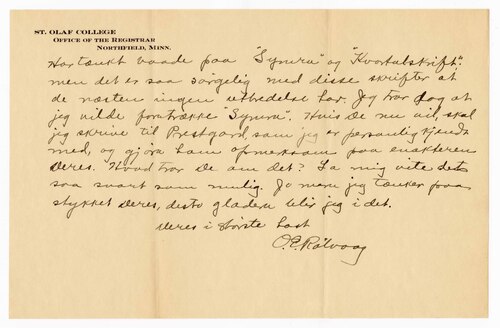 ST. OLAF COLLEGE
OFFICE OF THE REGISTRAR
NORTHFIELD, MINN.
Har tænkt baade paa "Symra" og "Kvartalskrift".
men det er saa sørgelig med disse skrifter at
de næsten ingen utbredelse har. Jeg tror dog at
jeg vilde foretrække "Symra". Hvis De nu vil, skal
jeg skrive til Prestgard, som jeg er personlig kjendt
med, og gjøre ham opmerksom paa enakteren
Deres. Hvad tror De om det? La mig vite det
saa snart som mulig. Jo mere jeg tænker paa
stykket Deres, desto gladere blir jeg i det.
Deres i største hast
O.E. Rølvaag